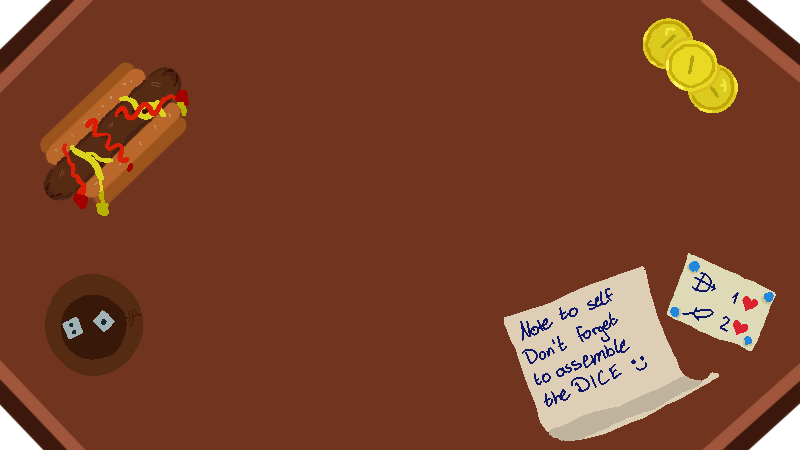 Note to self
Don't forget
to assemble
the DICE :)
1
2